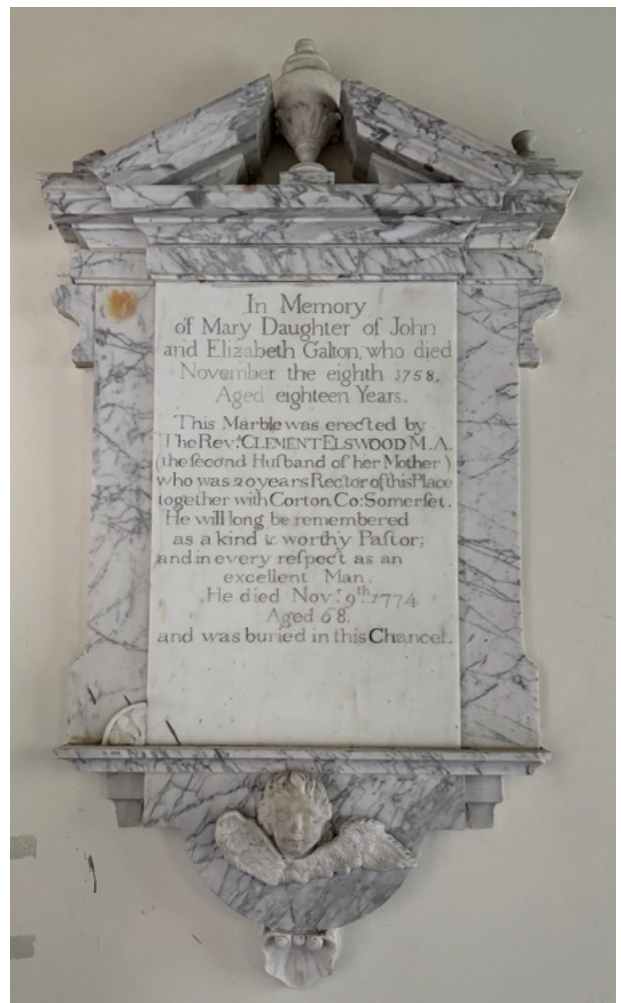 In Memory
of Mary Daughter of John
and Elizabeth Galton, who died
November the eighth 1758,
Aged eighteen Years.
This Marble was erected by
The Rev.d CLEMENT ELSWOOD M.A.
(the ſecond Huſband of her Mother)
who was 20 years Rector of this Place
together with Corton, Co: Somerſet.
He will long be remembered
as a kind & worthy Paſtor;
and in every reſpect as an
excellent Man.
He died Nov.r 9th. 1774
Aged 68.
and was buried in this Chancel.